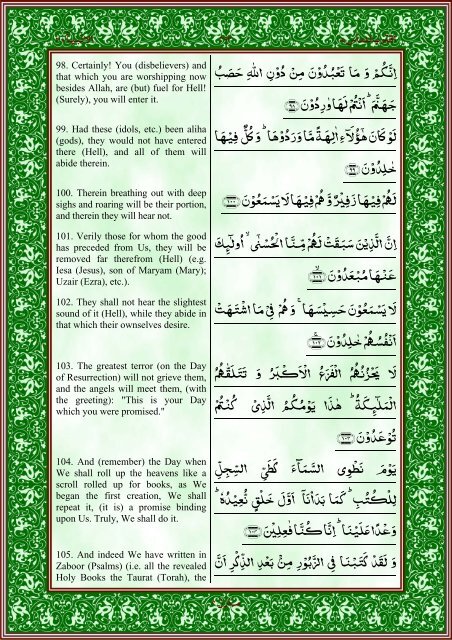 98. Certainly! You (disbelievers) and
that which you are worshipping now
besides Allah, are (but) fuel for Hell!
(Surely), you will enter it.
اِنَّكُمْ وَ مَا تَعْبُدُوْنَ مِنْ دُوْنِ اللّٰهِ حَصَبُ
جَهَنَّمَ ؕ اَنْتُمْ لَهَا وٰرِدُوْنَ ﴿۹۸﴾
99. Had these (idols, etc.) been aliha
(gods), they would not have entered
there (Hell), and all of them will
abide therein.
لَوْ كَانَ هٰٓؤُلَآءِ اٰلِهَةً مَّا وَرَدُوْهَا ؕ وَ كُلٌّ فِيْهَا
خٰلِدُوْنَ ﴿۹۹﴾
100. Therein breathing out with deep
sighs and roaring will be their portion,
and therein they will hear not.
لَهُمْ فِيْهَا زَفِيْرٌ وَّ هُمْ فِيْهَا لَا يَسْمَعُوْنَ ﴿۱۰۰﴾
101. Verily those for whom the good
has preceded from Us, they will be
removed far therefrom (Hell) (e.g.
Iesa (Jesus), son of Maryam (Mary);
Uzair (Ezra), etc.).
اِنَّ الَّذِيْنَ سَبَقَتْ لَهُمْ مِّنَّا الْحُسْنٰۤى ۙ اُولٰٓئِكَ
عَنْهَا مُبْعَدُوْنَ ﴿۱۰۱﴾
102. They shall not hear the slightest
sound of it (Hell), while they abide in
that which their ownselves desire.
لَا يَسْمَعُوْنَ حَسِيْسَهَا ۚ وَ هُمْ فِيْ مَا اشْتَهَتْ
اَنْفُسُهُمْ خٰلِدُوْنَ ﴿۱۰۲﴾
103. The greatest terror (on the Day
of Resurrection) will not grieve them,
and the angels will meet them, (with
the greeting): "This is your Day
which you were promised."
لَا يَحْزُنُهُمُ الْفَزَعُ الْاَكْبَرُ وَ تَتَلَقّٰىهُمُ
الْمَلٰٓئِكَةُ ؕ هٰذَا يَوْمُكُمُ الَّذِيْ كُنْتُمْ
تُوْعَدُوْنَ ﴿۱۰۳﴾
104. And (remember) the Day when
We shall roll up the heavens like a
scroll rolled up for books, as We
began the first creation, We shall
repeat it, (it is) a promise binding
upon Us. Truly, We shall do it.
يَوْمَ نَطْوِي السَّمَآءَ كَطَيِّ السِّجِلِّ
لِلْكُتُبِ ؕ كَمَا بَدَاْنَاۤ اَوَّلَ خَلْقٍ نُّعِيْدُهٗ ؕ
وَعْدًا عَلَيْنَا ؕ اِنَّا كُنَّا فٰعِلِيْنَ ﴿۱۰۴﴾
105. And indeed We have written in
Zaboor (Psalms) (i.e. all the revealed
Holy Books the Taurat (Torah), the
وَ لَقَدْ كَتَبْنَا فِي الزَّبُوْرِ مِنْۢ بَعْدِ الذِّكْرِ اَنَّ